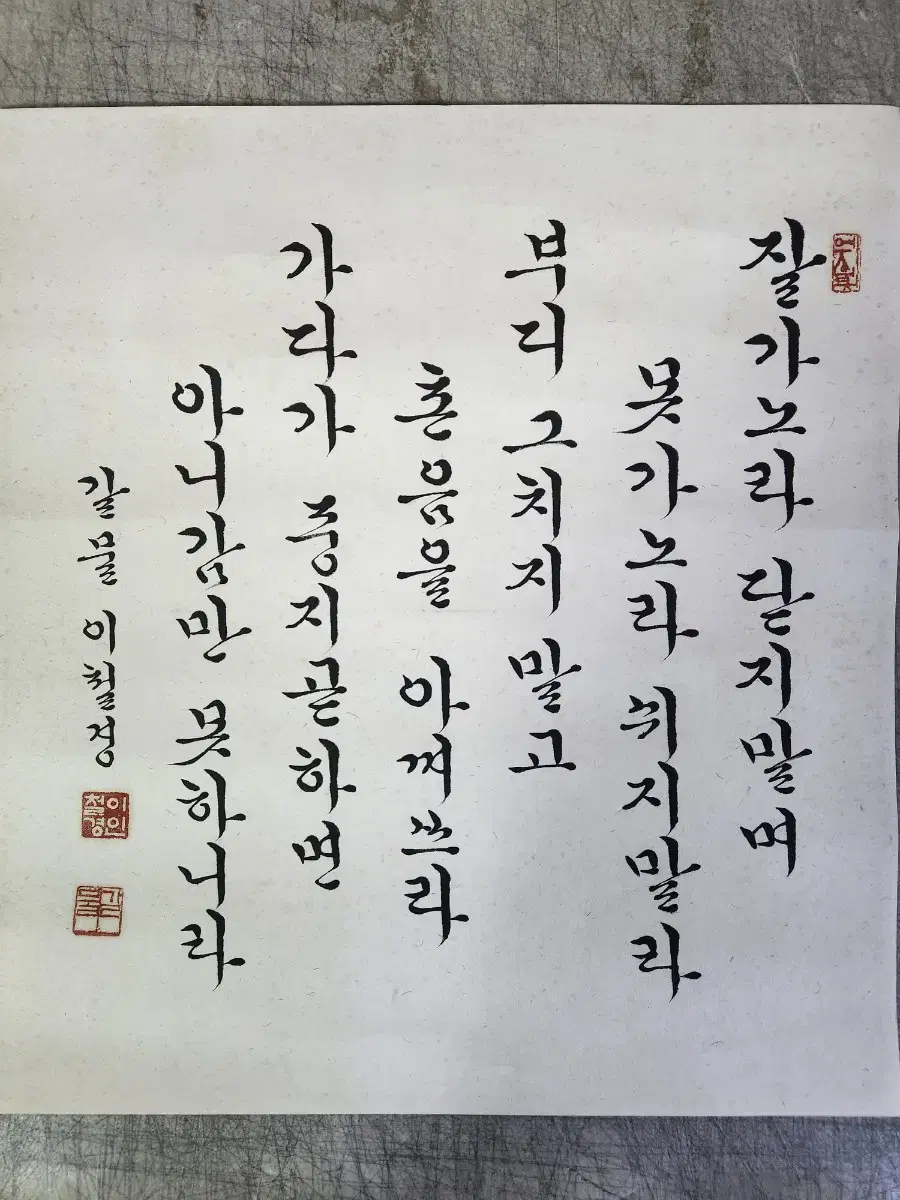 잘가노라 닫지말며
못가노라 쉬지말라
부디 그치지 말고
촌음을 아껴쓰라
가다가 중지곧하면
아니감만 못하니라
갈물 이철경
이철경인